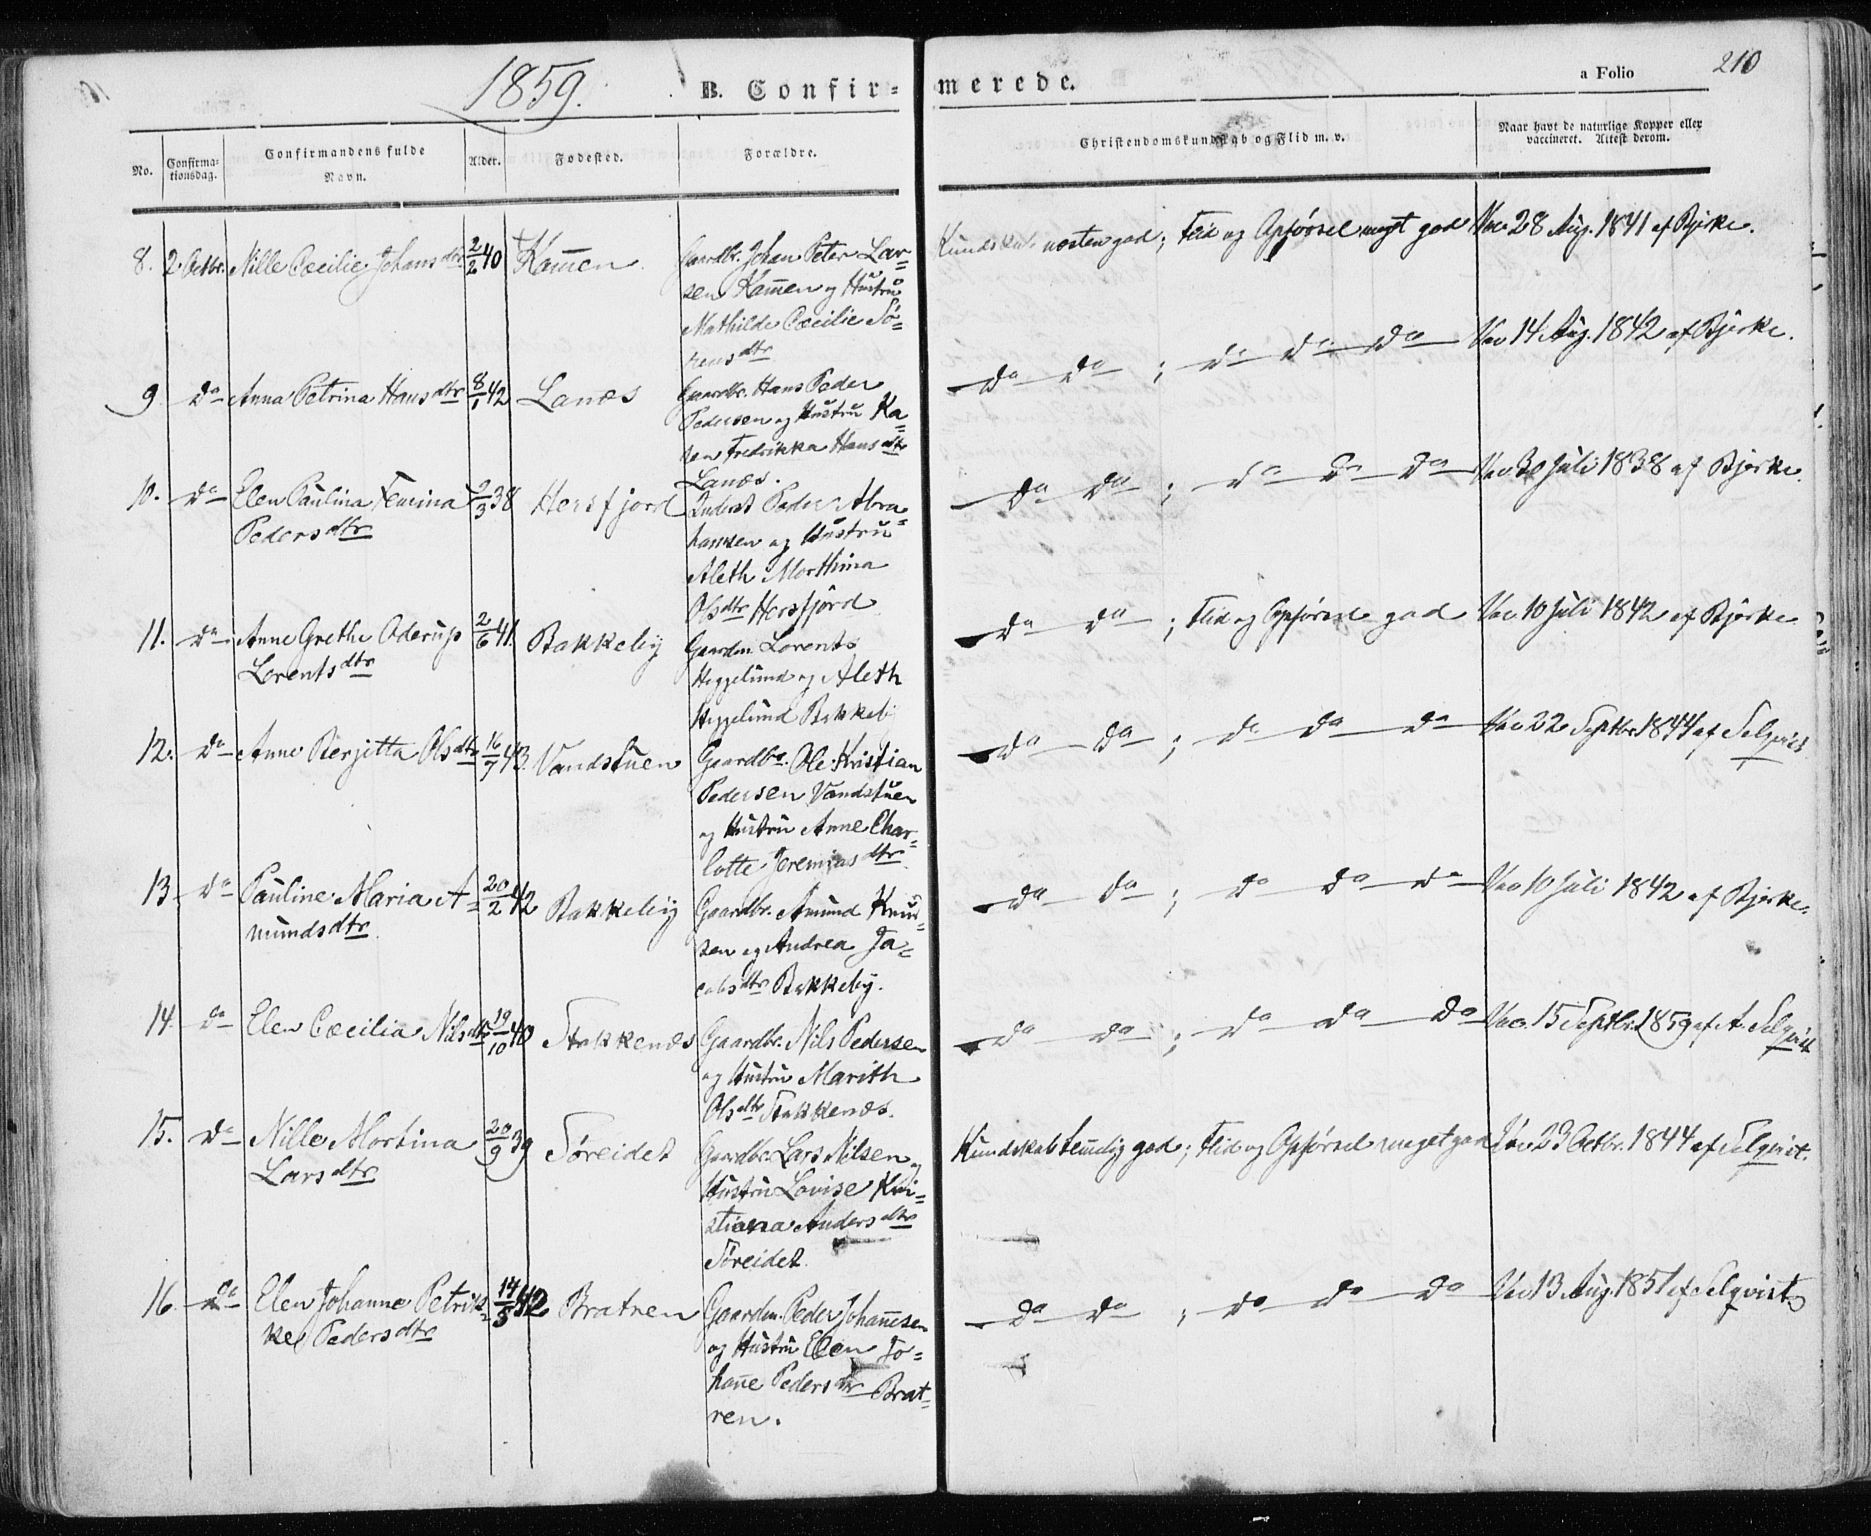 1859.
B. Confir-
merede.
a Folio
210
No.
Confirma-
tionsdag.
Confirmandens fulde
Navn.
Alder.
Fødested.
Forældre.
Christendomskundskab og Flid m. v.
Naar havt de naturlige Kopper eller
vaccineret. Attest derom.
8. 2 Octbr. Nille Cæcilie Johansdtr 2/2 40 Kamen
Gaardbr. Johan Peter Lar-
sen Kamen og Hustru
Mathilde Cæcilie Sö-
rensdtr
Kundskab næsten god; Flid og Opförsel meget god
Vac 28 Aug. 1841 af Bjerke.
9. Do Anna Petrina Hansdtr 8/1 42 Lanæs
Gaardbr. Hans Peder
Pedersen og Hustru Ka-
ren Fredrikka Hansdtr
Lanæs.
Do Do ; Do Do Do
Vac 14 Aug. 1842 af Bjerke.
10. Do Elen Paulina
Pedersdtr
2/3 38 Hersfjord
Inderst Peder Abra-
hamsen og Hustru
Aleth Morthina
Olsdtr Hersfjord
Do Do ; Do Do Do
Vac 30 Juli 1838 af Bjerke.
11. Do Anne Grethe Oderup
Lorentsdtr
2/6 41. Bakkeby
Gaardm. Lorents
Heggelund og Aleth
Heggelund Bakkeby
Do Do ; Flid og Opförsel god
Vac 10 Juli 1842 af Bjerke
12. Do Anne Berjitta Olsdtr 16/7 43. Vandstuen
Gaardbr. Ole Kristian
Pedersen Vandstuen
og Hustru Anne Char-
lotte Jeremiasdtr
Do Do ; Do Do Do
Vac 22 Septbr 1844 af Selqvist
13 Do Pauline Maria A-
mundsdtr
20/2 42 Bakkeby
Gaardbr. Amund Knud-
sen og Andrea Ja-
cobsdtr Bakkeby.
Do Do ; Do Do Do
Vac 10 Juli 1842 af Bjerke.
14 Do Elen Cæcilia Nilsdtr 19/10 40 Stakkenæs
Gaardbr. Nils Pedersen
og Hustru Marith
Olsdtr Stakkenæs.
Do Do ; Do Do Do
Vac. 15 Septbr. 1859 af A. Selqvist
15. Do Nille Mortina
Larsdtr
20/9 39 Söreidet
Gaardbr. Lars Nilsen og
Hustru Lovise Kri-
stiana Andersdtr
Söreidet
Kundskab temmelig god; Flid og Opförsel meget god
Vac 23 Octbr. 1844 af Selqvist.
16. Do Elen Johanne Petrik-
ke Pedersdtr
14/5 42 Bratren
Gaardm. Peder Johannesen
og Hustru Elen Jo-
hanne Pedersdtr Brat-
ren.
Do Do ; Do Do Do
Vac 13 Aug. 1851 af Selqvist